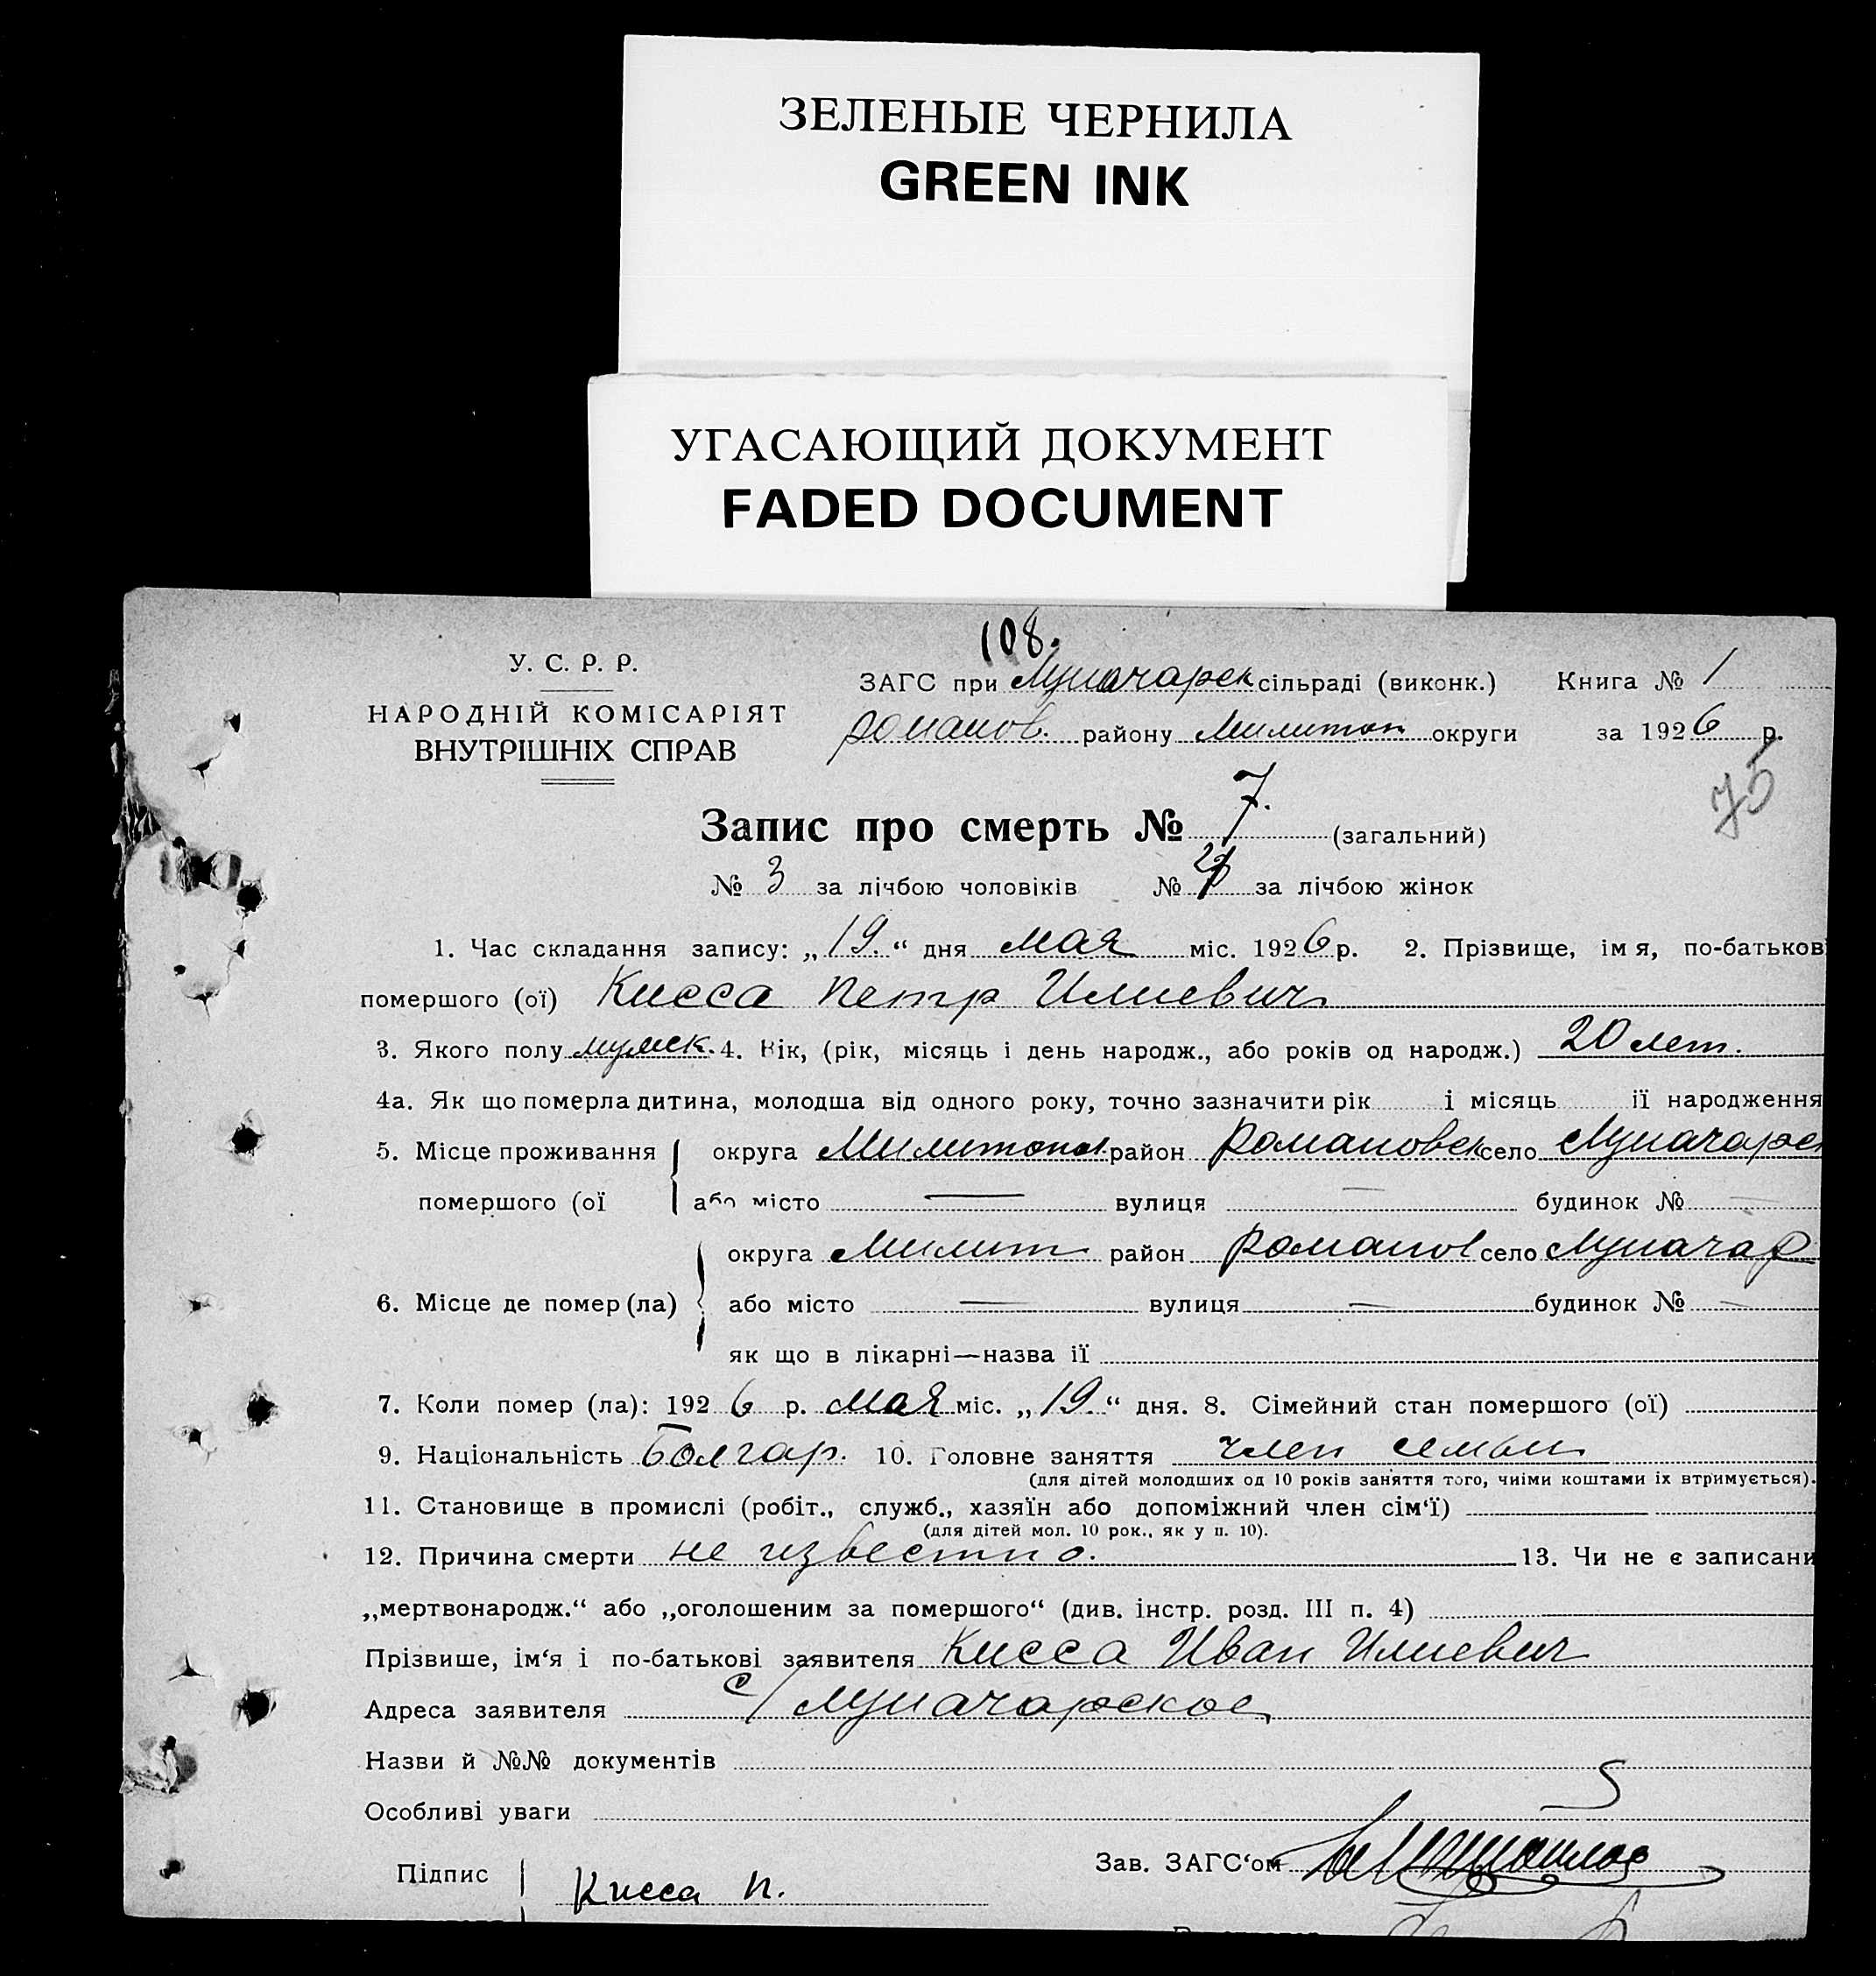 ЗЕЛЕНЫЕ ЧЕРНИЛА
GREEN INK
УГАСАЮЩИЙ ДОКУМЕНТ
FADED DOCUMENT
108.
У. С. Р. Р.
НАРОДНІЙ КОМІСАРІЯТ
ВНУТРІШНІХ СПРАВ
ЗАГС при Луначарск сільраді (виконк.) Книга № 1
Романов. району Милитоп округи за 1926 р.
75
7.
Запис про смерть № (загальний)
№ 3 за лічбою чоловіків № за лічбою жінок
1. Час складання запису: „19.“ дня мая міс. 1926 р. 2. Прізвище, імя, по-батькові
помершого (ої) Кисса Петр Илиевич
3. Якого полу мужск. 4. Вік, (рік, місяць і день народж., або років од народж.) 20 лет.
4а. Як що померла дитина, молодша від одного року, точно зазначити рік і місяць її народження
5. Місце проживання округа Милитопол район Романовск село Луначарск
помершого (ої або місто — вулиця — будинок № —
округа Милит район Романов село Луначар
6. Місце де помер (ла) або місто — вулиця — будинок № —
як що в лікарні—назва її
7. Коли помер (ла): 1926 р. мая міс. „19.“ дня. 8. Сімейний стан помершого (ої)
9. Національність Болгар. 10. Головне заняття член семьи
(для дітей молодших од 10 років заняття того, чиїми коштами їх втримується).
11. Становище в промислі (робіт., служб., хазяїн або допоміжний член сім‘ї)
(для дітей мол. 10 рок., як у п. 10).
12. Причина смерти не известно. 13. Чи не є записани
„мертвонародж.“ або „оголошеним за помершого“ (див. інстр. розд. III п. 4)
Прізвише, ім‘я і по-батькові заявителя Кисса Иван Илиевич
Адреса заявителя с/Луначарское
Назви й №№ документів
Особливі уваги
Підпис Кисса П.
Зав. ЗАГС‘ом